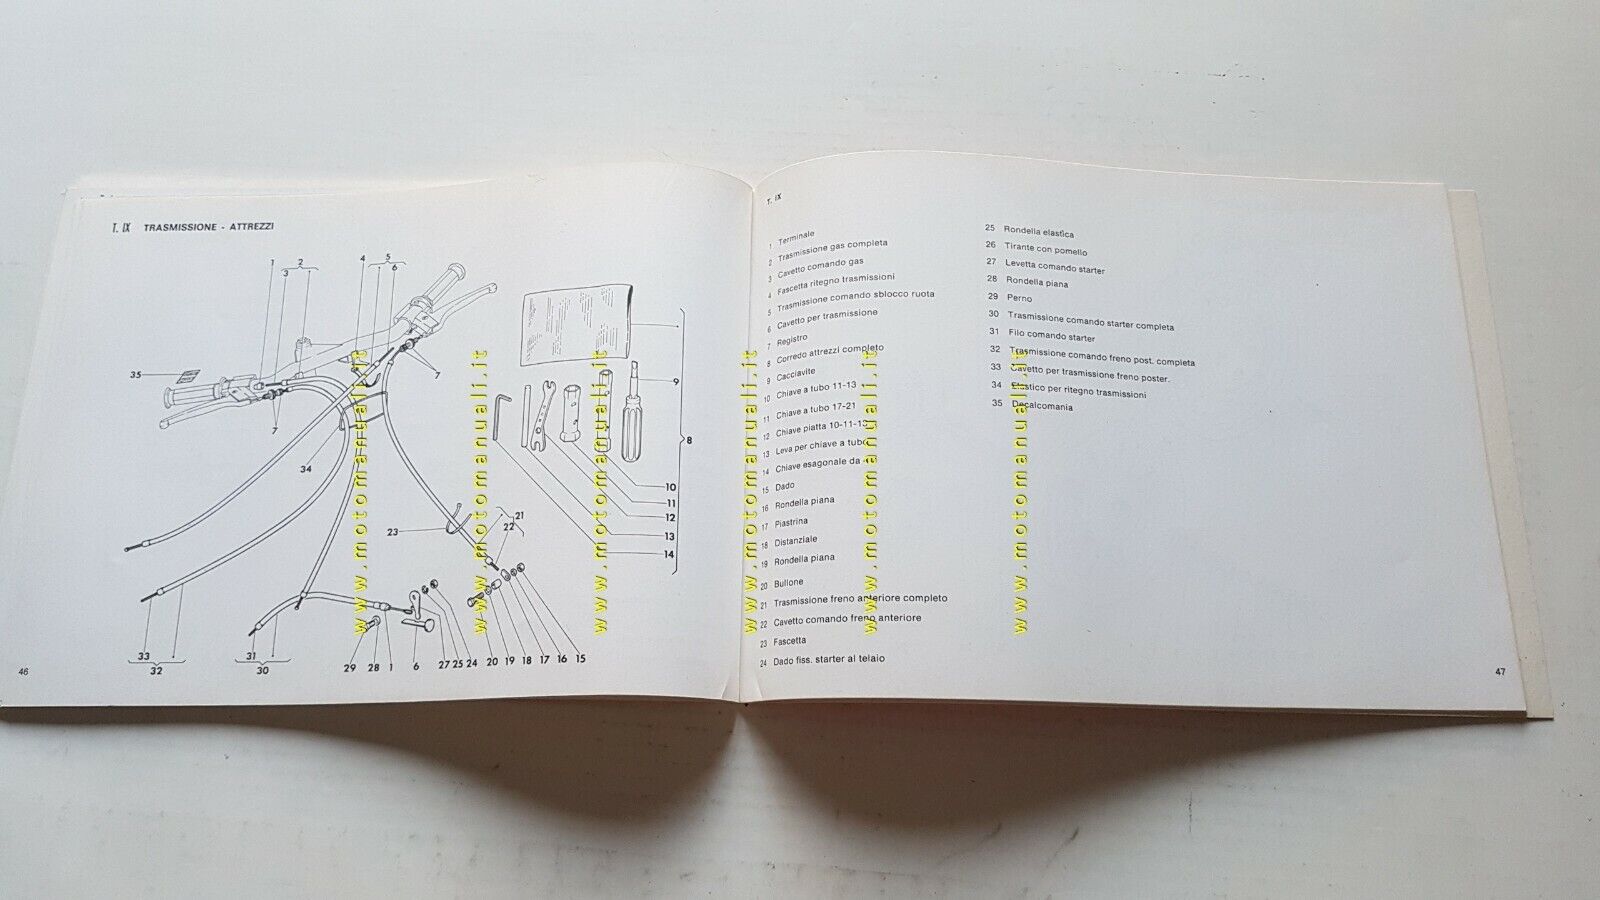 T. IX TRASMISSIONE - ATTREZZI
1 2 3 4 5 6
35
7
7
9
8
34
10
11
12
13
14
23
21
22
33
32
31
30
29 28 1 6 27 25 24 20 19 18 17 16 15
46
www.motomanuali.it
www.motomanuali.it
www.motomanuali.it
T. IX
1 Terminale
2 Trasmissione gas completa
3 Cavetto comando gas
4 Fascetta ritegno trasmissioni
5 Trasmissione comando sblocco ruota
6 Cavetto per trasmissione
7 Registro
8 Corredo attrezzi completo
9 Cacciavite
10 Chiave a tubo 11-13
11 Chiave a tubo 17-21
12 Chiave piatta 10-11-13
13 Leva per chiave a tubo
14 Chiave esagonale da
15 Dado
16 Rondella piana
17 Piastrina
18 Distanziale
19 Rondella piana
20 Bullone
21 Trasmissione freno anteriore completo
22 Cavetto comando freno anteriore
23 Fascetta
24 Dado fiss. starter al telaio
25 Rondella elastica
26 Tirante con pomello
27 Levetta comando starter
28 Rondella piana
29 Perno
30 Trasmissione comando starter completa
31 Filo comando starter
32 Trasmissione comando freno post. completa
33 Cavetto per trasmissione freno poster.
34 Elastico per ritegno trasmissioni
35 Decalcomania
47
www.motomanuali.it
www.motomanuali.it
www.motomanuali.it